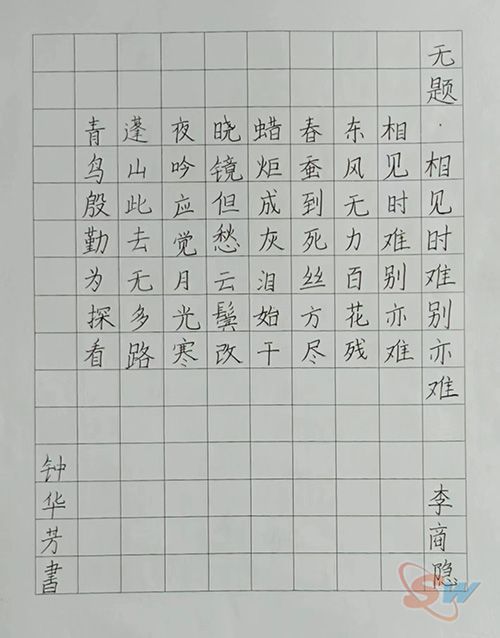 无题·相见时难别亦难
李商隐
相见时难别亦难
东风无力百花残
春蚕到死丝方尽
蜡炬成灰泪始干
晓镜但愁云鬓改
夜吟应觉月光寒
蓬山此去无多路
青鸟殷勤为探看
钟华芳書
SW